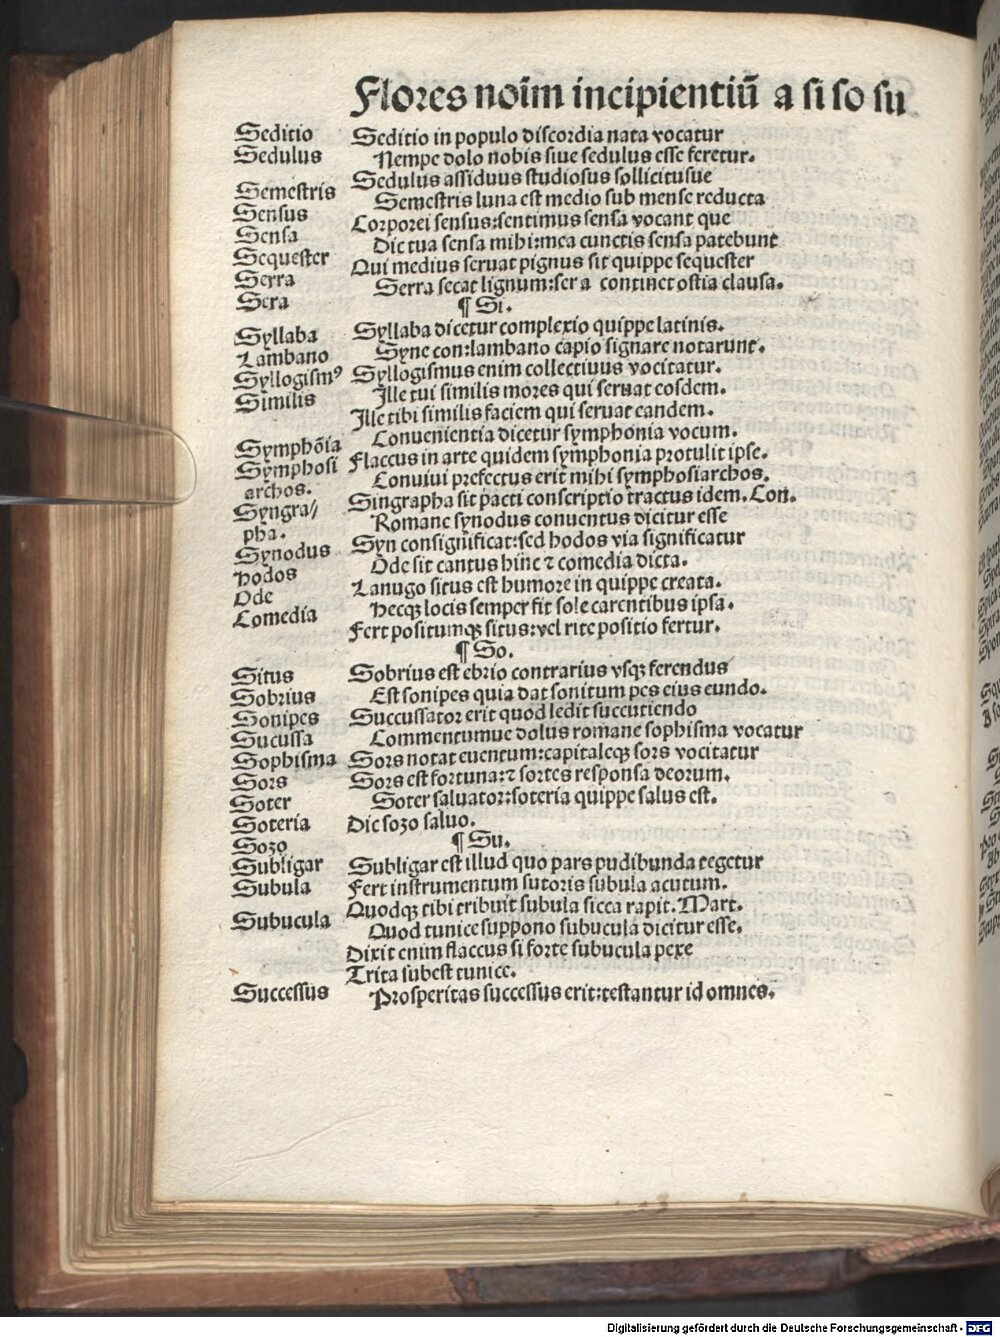 Flores noīm incipientiū a si so su
Seditio Seditio in populo discordia nata vocatur
Sedulus Nempe dolo nobis siue sedulus esse feretur.
Sedulus assiduus studiosus sollicitusue
Semestris Semestris luna est medio sub mense reducta
Sensus Corporei sensus:sentimus sensa vocant que
Sensa Dic tua sensa mihi:mea cunctis sensa patebunt
Sequester Qui medius seruat pignus sit quippe sequester
Serra Serra secat lignum:sera continet ostia clausa.
Sera ¶ Si.
Syllaba Syllaba dicetur complexio quippe latinis.
Lambano Syne con:lambano capio signare notarunt.
Syllogismꝰ Syllogismus enim collectiuus vocitatur.
Similis Ille tui similis mores qui seruat eosdem.
Ille tibi similis faciem qui seruat eandem.
Symphōia Conuenientia dicetur symphonia vocum.
Symphosi Flaccus in arte quidem symphonia protulit ipse.
archos. Conuiui prefectus erit mihi symphosiarchos.
Syngra// Singrapha sit pacti conscriptio tractus idem. Con.
pha. Romane synodus conuentus dicitur esse
Synodus Syn consignificat:sed hodos via significatur
hodos Ode sit cantus hinc ⁊ comedia dicta.
Ode Lanugo situs est humore in quippe creata.
Comedia Hecqꝫ locis semper fit sole carentibus ipsa.
Fert positumqꝫ situs:vel rite positio fertur.
¶ So.
Situs Sobrius est ebrio contrarius vsqꝫ ferendus
Sobrius Est sonipes quia dat sonitum pes eius eundo.
Sonipes Succussator erit quod ledit succutiendo
Sucussa Commentumue dolus romane sophisma vocatur
Sophisma Sors notat euentum:capitaleqꝫ sors vocitatur
Sors Sors est fortuna:⁊ sortes responsa deorum.
Soter Soter saluator:soteria quippe salus est.
Soteria Dic sozo saluo.
Sozo ¶ Su.
Subligar Subligar est illud quo pars pudibunda tegetur
Subula Fert instrumentum sutoris subula acutum.
Quodqꝫ tibi tribuit subula sicca rapit. Mart.
Subucula Quod tunice suppono subucula dicitur esse.
Dixit enim flaccus si forte subucula pexe
Trita subest tunice.
Successus Prosperitas successus erit:testantur id omnes.
Digitalisierung gefördert durch die Deutsche Forschungsgemeinschaft - DFG